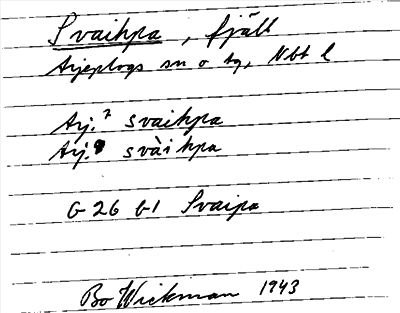 Svaihpa, fjäll
Arjeplogs sn o tg, Nbt l
Arj.² svaihpa
Arj. svàihpa
G 26 b1 Svaipa
Bo Wickman 1943